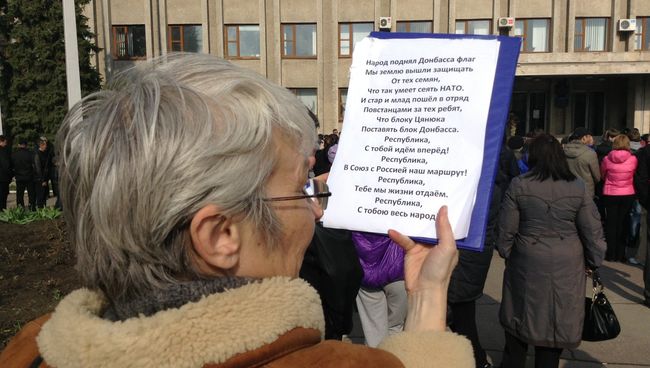 Народ поднял Донбасса флаг
Мы землю вышли защищать
От тех семян,
Что так умеет сеять НАТО.
И стар и млад пошёл в отряд
Повстанцами за тех ребят,
Что блоку Цянюка
Поставять блок Донбасса.
Республика,
С тобой идём вперёд!
Республика,
В Союз с Россией наш маршрут!
Республика,
Тебе мы жизни отдаём.
Республика,
С тобою весь народ